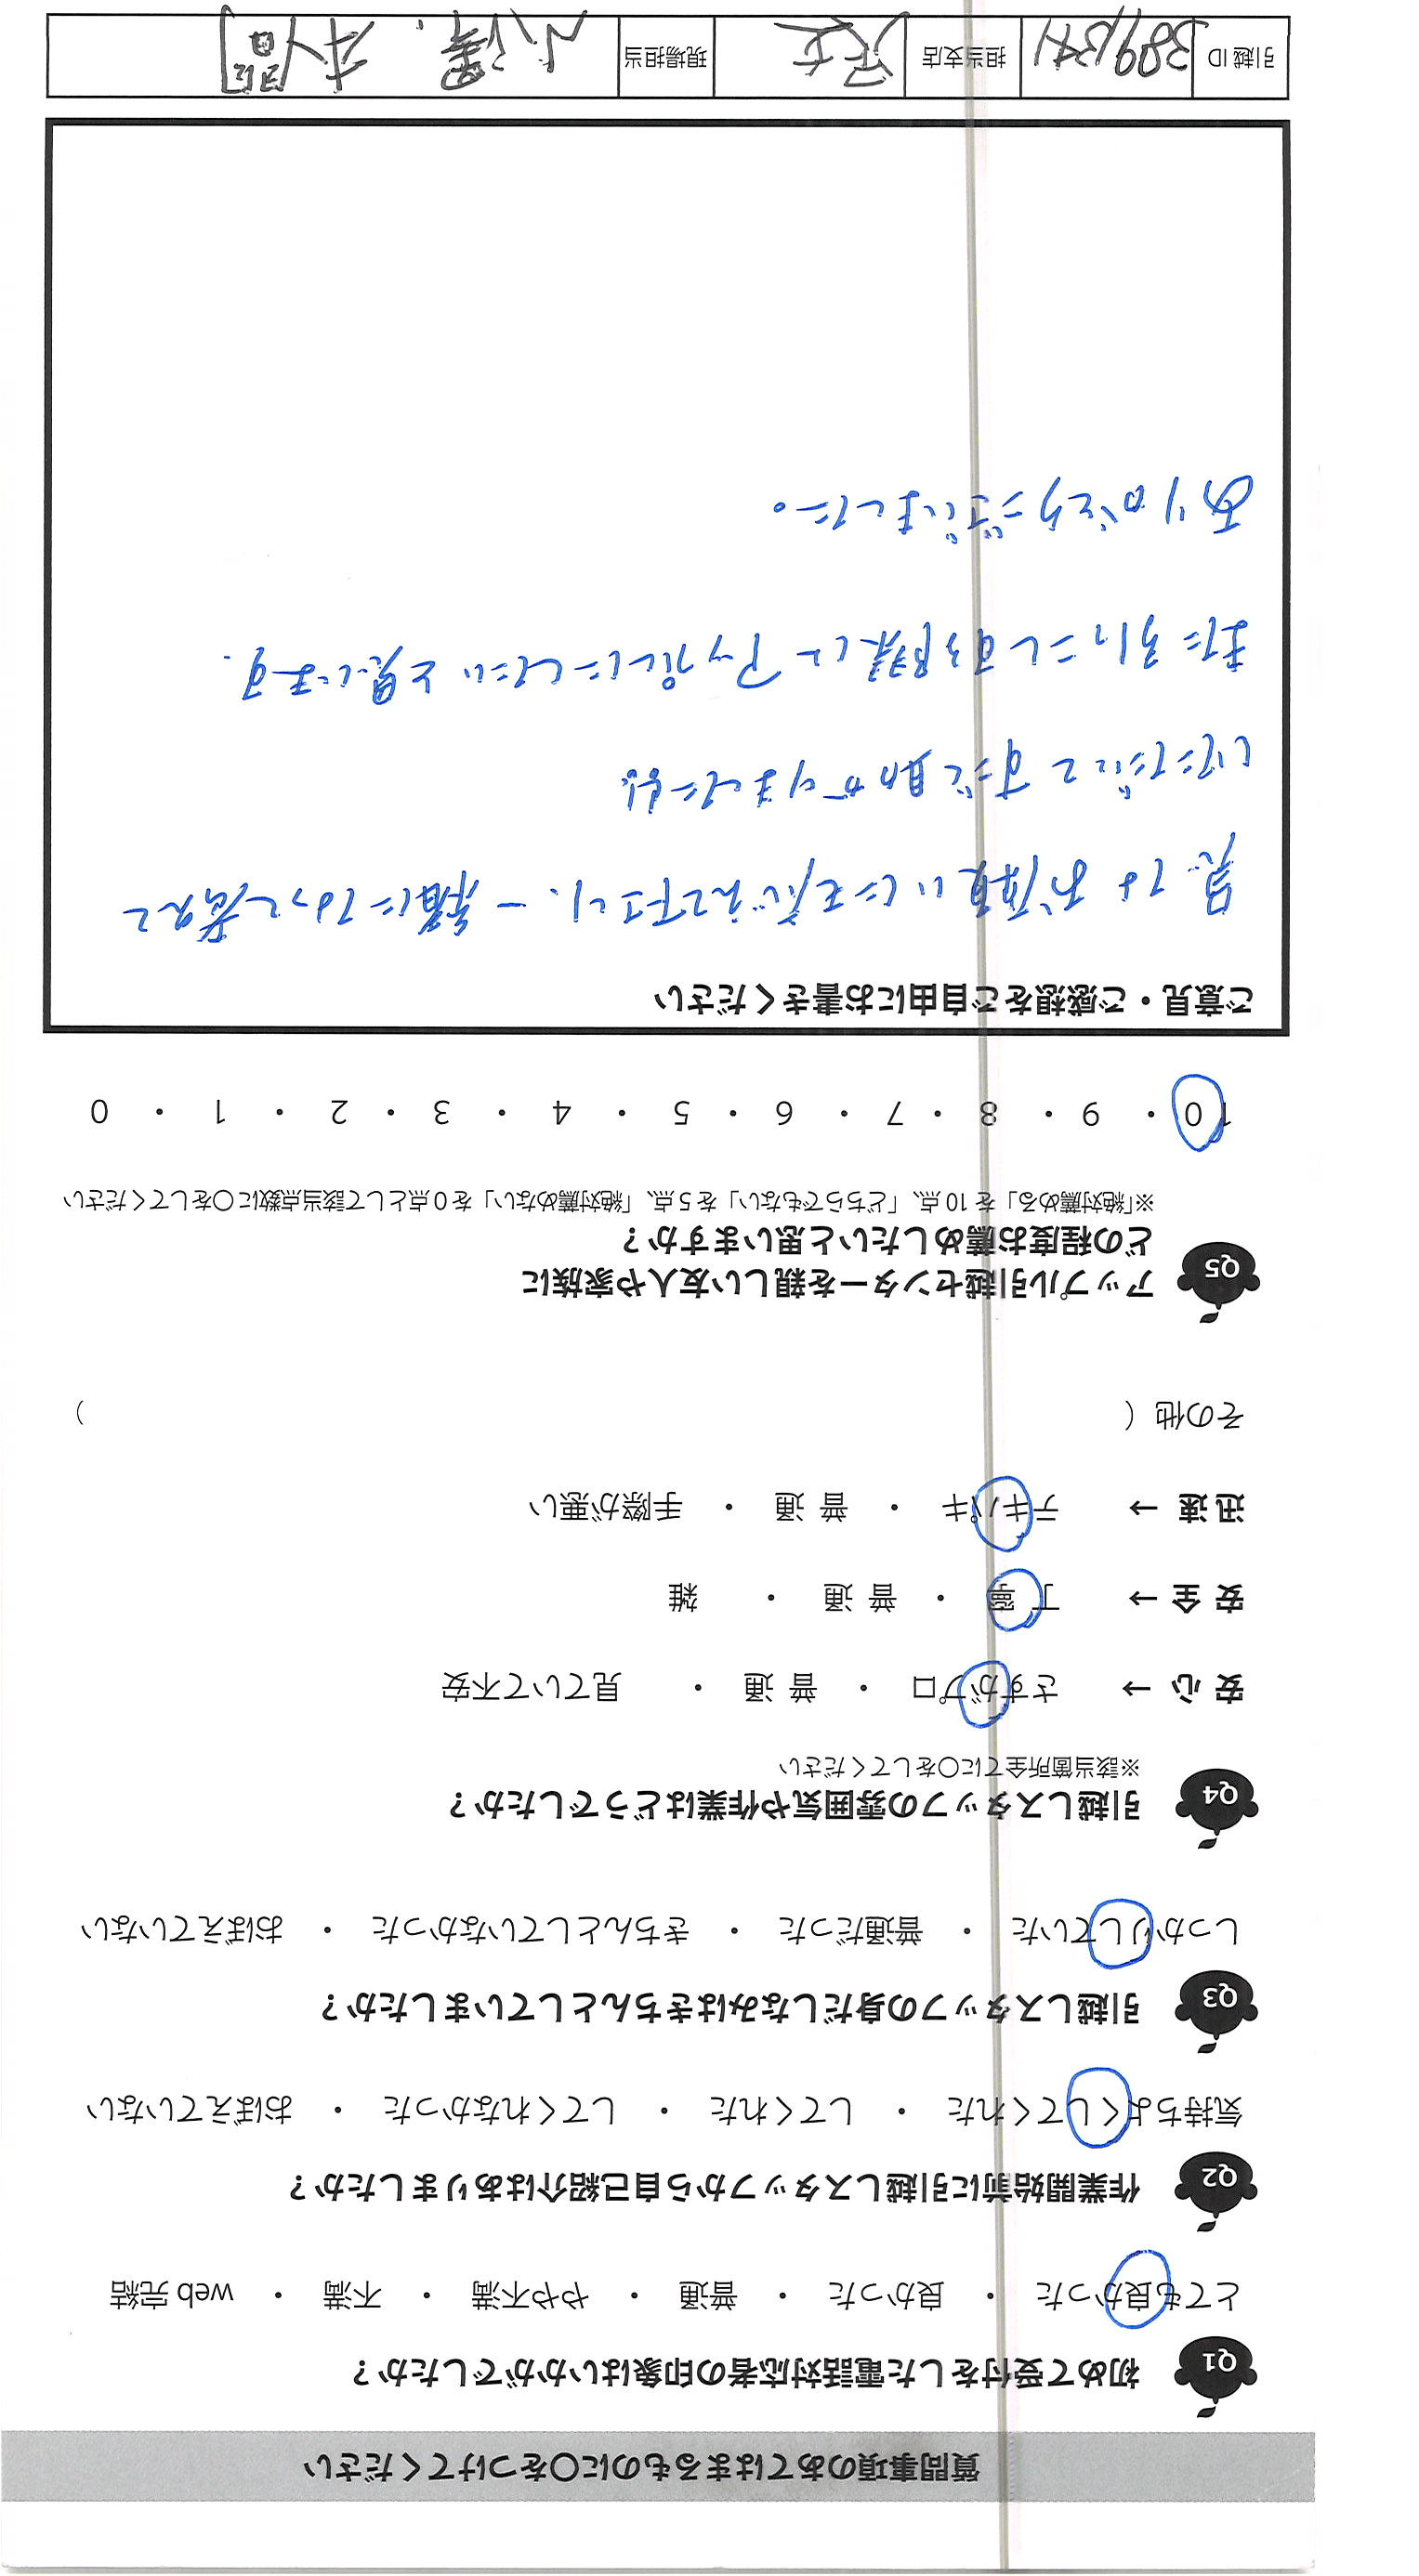 質問事項のあてはまるものに〇をつけてください
Q1 初めて受付をした電話対応者の印象はいかがでしたか？
とても良かった ・ 良かった ・ 普通 ・ やや不満 ・ 不満 ・ web 完結
Q2 作業開始前に引越しスタッフから自己紹介はありましたか？
気持ちよくしてくれた ・ してくれた ・ してくれなかった ・ おぼえていない
Q3 引越しスタッフの身だしなみはきちんとしていましたか？
しっかりしていた ・ 普通だった ・ きちんとしていなかった ・ おぼえていない
Q4 引越しスタッフの雰囲気や作業はどうでしたか？
※該当箇所全てに〇をしてください
安 心 → さすがプロ ・ 普 通 ・ 見ていて不安
安 全 → 丁 寧 ・ 普 通 ・ 雑
迅 速 → テキパキ ・ 普 通 ・ 手際が悪い
その他（ ）
Q5 アップル引越センターを親しい友人や家族に
どの程度お薦めしたいと思いますか？
※「絶対薦める」を 10 点、「どちらでもない」を 5 点、「絶対薦めない」を 0 点として該当点数に〇をしてください
10 ・ 9 ・ 8 ・ 7 ・ 6 ・ 5 ・ 4 ・ 3 ・ 2 ・ 1 ・ 0
ご意見・ご感想をご自由にお書きください
急なお願いにも 下さり、一緒になって考えて
いただいて すごく助かりました!!
また引っこしする際は アップルにしたいと思います.
ありがとうございました。
引越 ID 担当支店 現場担当 小澤. 本間